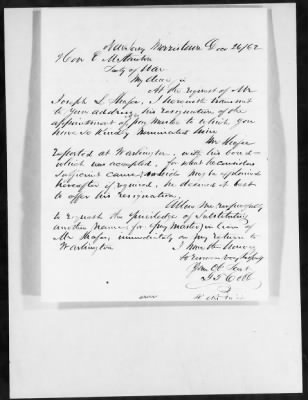 Morristown Nov 26/62
Hon E M Stanton
Secty of War
My dear Sir
At the request of Mr
Joseph L. Shafer, I herewith transmit
to your address, his resignation of the
appointment of Pay Master to which you
have so kindly nominated him
Mr Shafer
Reported at Washington, with his bond
which was accepted, for what he considers
sufficient cause, which may be explained
hereafter if required, he deemed it best
to offer his resignation,
Allow me respectfully
to request the privilege of substituting
another name, for Pay Master, in lieu of
Mr Shafer, immediately on my return to
Washington
I have the honor
to remain very respy
Your Ob Servt
G T Cobb